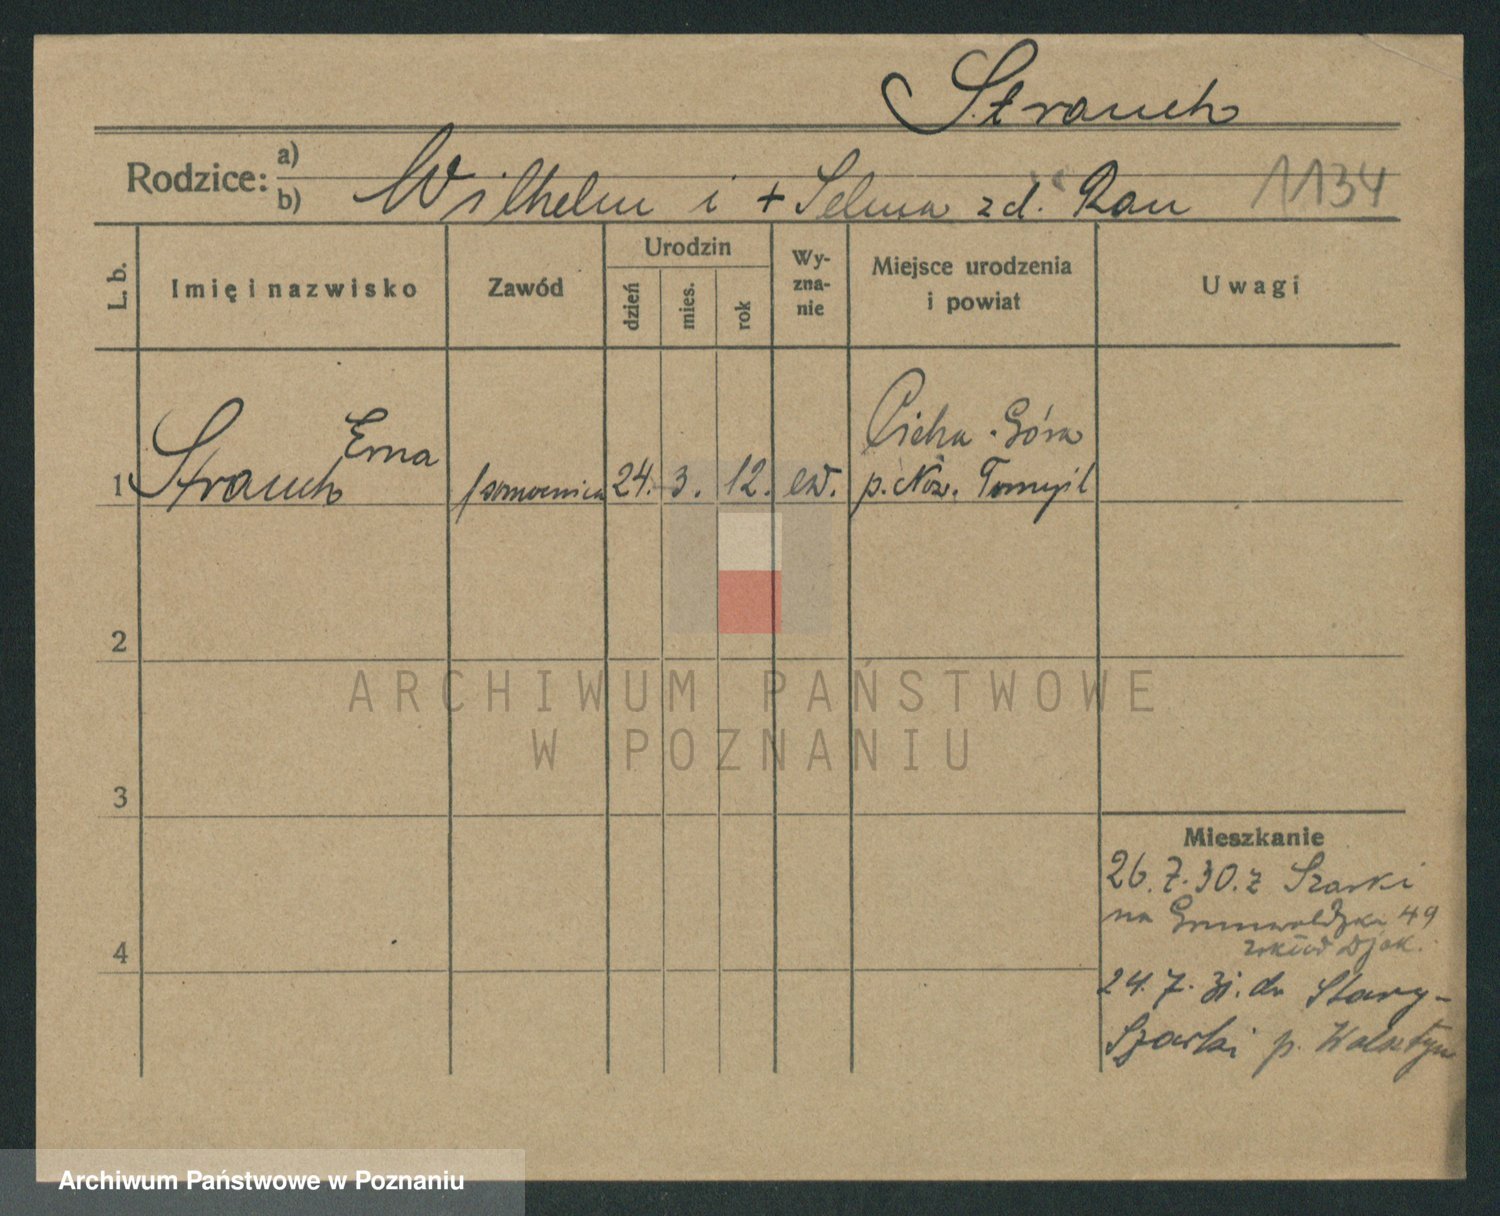 Strauch
Rodzice: a)
b) Wilhelm i + Selma zd. Rau 1134
L. b.
Imię i nazwisko
Zawód
Urodzin
dzień
mies.
rok
Wy-
zna-
nie
Miejsce urodzenia
i powiat
Uwagi
1 Strauch Erna
24. 3. 12. ew.
Cicha-Góra
p. Now. Tomyśl
2
3
4
Mieszkanie
26.7.30. z Szarki
na Grunwaldzka 49
zakład Djak.
24.7.31. do Stary-
Szarki p. Wolsztyn
ARCHIWUM PAŃSTWOWE
W POZNANIU
Archiwum Państwowe w Poznaniu